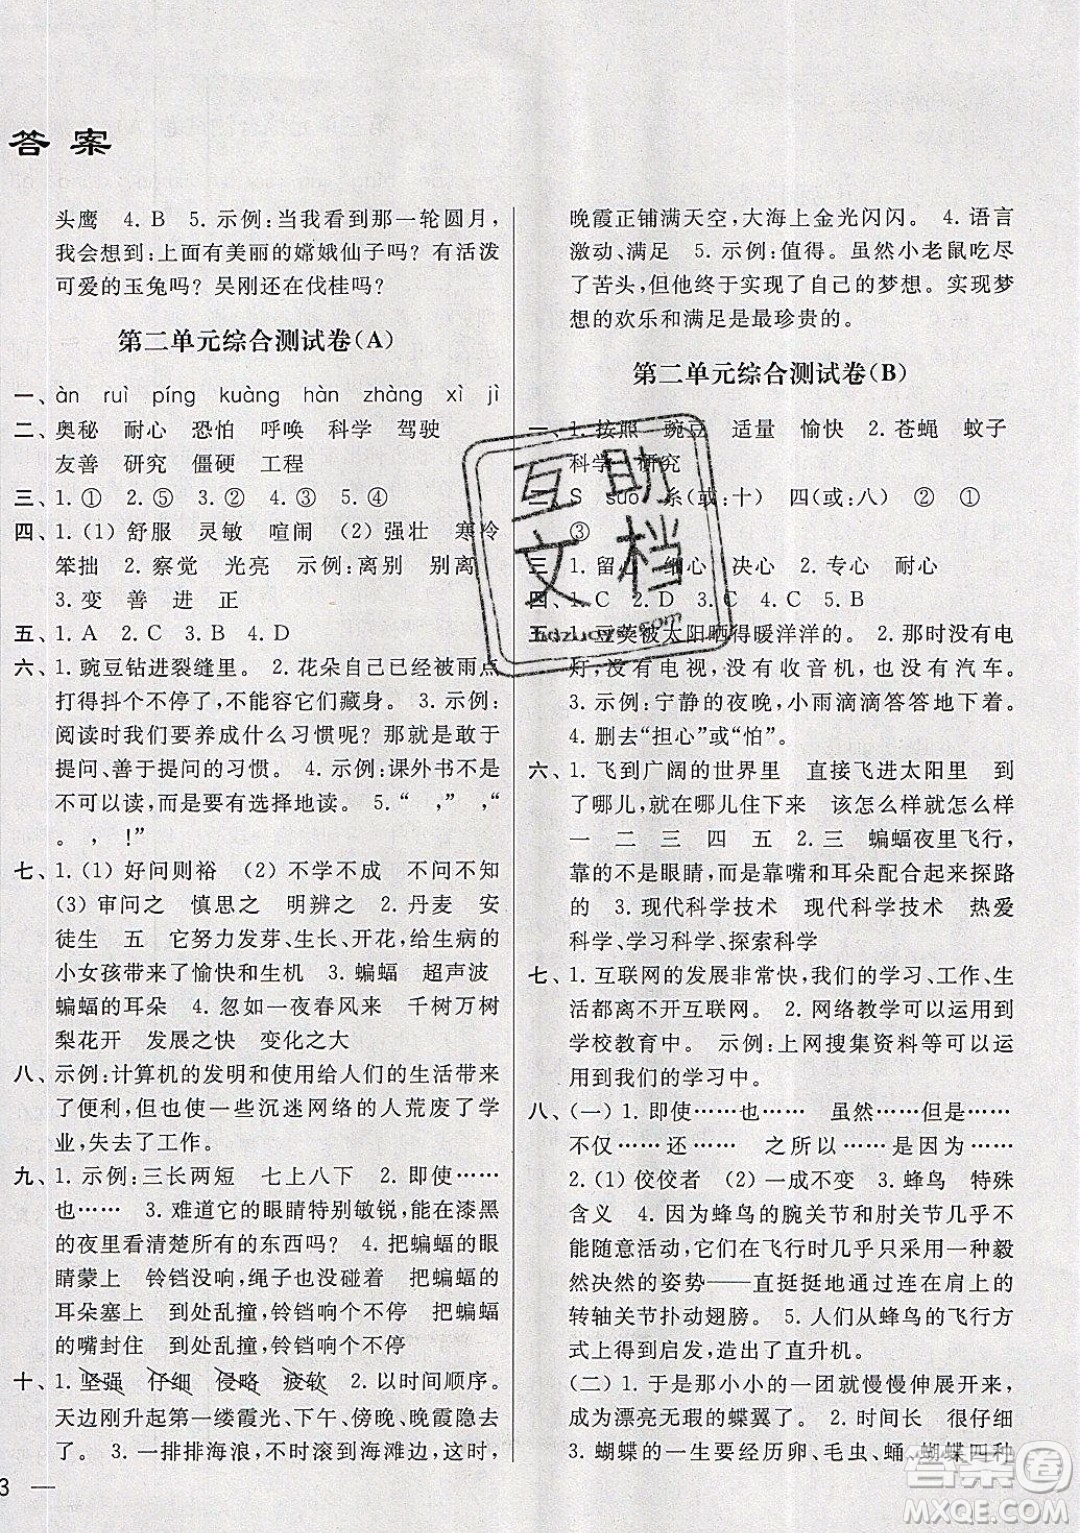 答 案
头鹰 4. B 5. 示例:当我看到那一轮圆月,
我会想到:上面有美丽的嫦娥仙子吗?有活泼
可爱的玉兔吗?吴刚还在伐桂吗?
第二单元综合测试卷(A)
一、àn ruì píng kuàng hàn zhàng xì jì
二、奥秘 耐心 恐怕 呼唤 科学 驾驶
友善 研究 僵硬 工程
三、1. ① 2. ⑤ 3. ③ 4. ② 5. ④
四、1. (1) 舒服 灵敏 喧闹 (2) 强壮 寒冷
笨拙 2. 察觉 光亮 示例:离别 别离
3. 变 善 进 正
五、1. A 2. C 3. B 4. D
六、1. 豌豆钻进裂缝里。 2. 花朵自己已经被雨点
打得抖个不停了,哪能给它们藏身。 3. 示例:
阅读时我们要养成什么习惯呢?那就是敢于
提问、善于提问的习惯。 4. 示例:课外书不是
不可以读,而是要有选择地读。 5.“ ,” ,“
。 , !”
七、1. (1) 好问则裕 (2) 不学不成 不问不知
(3) 审问之 慎思之 明辨之 2. 丹麦 安
徒生 五 它努力发芽、生长、开花,给生病的
小女孩带来了愉快和生机 3. 蝙蝠 超声波
蝙蝠的耳朵 4. 忽如一夜春风来 千树万树
梨花开 发展之快 变化之大
八、示例:计算机的发明和使用给人们的生活带来
了便利,但也使一些沉迷网络的人荒废了学
业,失去了工作。
九、1. 示例:三长两短 七上八下 2. 即使……
也…… 3. 难道它的眼睛特别敏锐,能在漆黑
的夜里看清楚所有的东西吗? 4. 把蝙蝠的眼
睛蒙上 铃铛没响,绳子也没动 把蝙蝠的
耳朵塞上 到处乱撞,铃铛响个不停 把蝙蝠
的嘴封住 到处乱撞,铃铛响个不停
十、1. 坚强 仔细 侵略 疲软 2. 以时间顺序。
天边刚升起第一缕霞光、下午、傍晚、晚霞正铺满
天空。 3. 一排排海浪,不时滚到海滩边,这时,
3 —
晚霞正铺满天空,大海上金光闪闪。 4. 语言
激动、满足 5. 示例:值得。虽然小老鼠吃尽
了苦头,但他终于实现了自己的梦想。实现梦
想的欢乐和满足是最珍贵的。
第二单元综合测试卷(B)
一、1. 按照 豌豆 适量 愉快 2. 苍蝇 蚊子
科学 研究
二、S suō 糸(或:十) 四(或:八) ② ①
③
三、1. 留心 细心 决心 2. 专心 耐心
四、1. C 2. D 3. C 4. C 5. B
五、1. 豆荚被太阳晒得暖洋洋的。 2. 那时没有电
灯,没有电视,没有收音机,也没有汽车。
3. 示例:宁静的夜晚,小雨滴滴答答地下着。
4. 删去“担心”或“怕”。
六、1. 飞到广阔的世界里 直接飞进太阳里 到
了哪儿,就在哪儿住下来 该怎么样就怎么样
一 二 三 四 五 2. 三 蝙蝠夜里飞行,
靠的不是眼睛,而是靠嘴和耳朵配合起来探路
的 3. 现代科学技术 现代科学技术 热爱
科学、学习科学、探索科学
七、1. 互联网的发展非常快,我们的学习、工作、生
活都离不开互联网。 2. 网络教学可以运用到
学校教育中。 示例:上网搜集资料等可以运用
到我们的学习中。
八、(一) 1. 即使……也…… 虽然……但是……
不仅……还…… 之所以……是因为……
2. (1) 佼佼者 (2) 一成不变 3. 蜂鸟 特殊
含义 4. 因为蜂鸟的腕关节和肘关节几乎不
能随意活动,它们在飞行时几乎只用一种毅
然决然的姿势——直挺挺地通过连在肩上的
转轴关节扑动翅膀。 5. 人们从蜂鸟的飞行方
式上得到启发,造出了直升机。
(二) 1. 于是那小小的一团就慢慢伸展开来,
成为漂亮无瑕的蝶翼了。 2. 时间长 很仔细
3. 蝴蝶的一生要经历卵、毛虫、蛹、蝴蝶四种
互助文档
答案圈
MXQE.COM